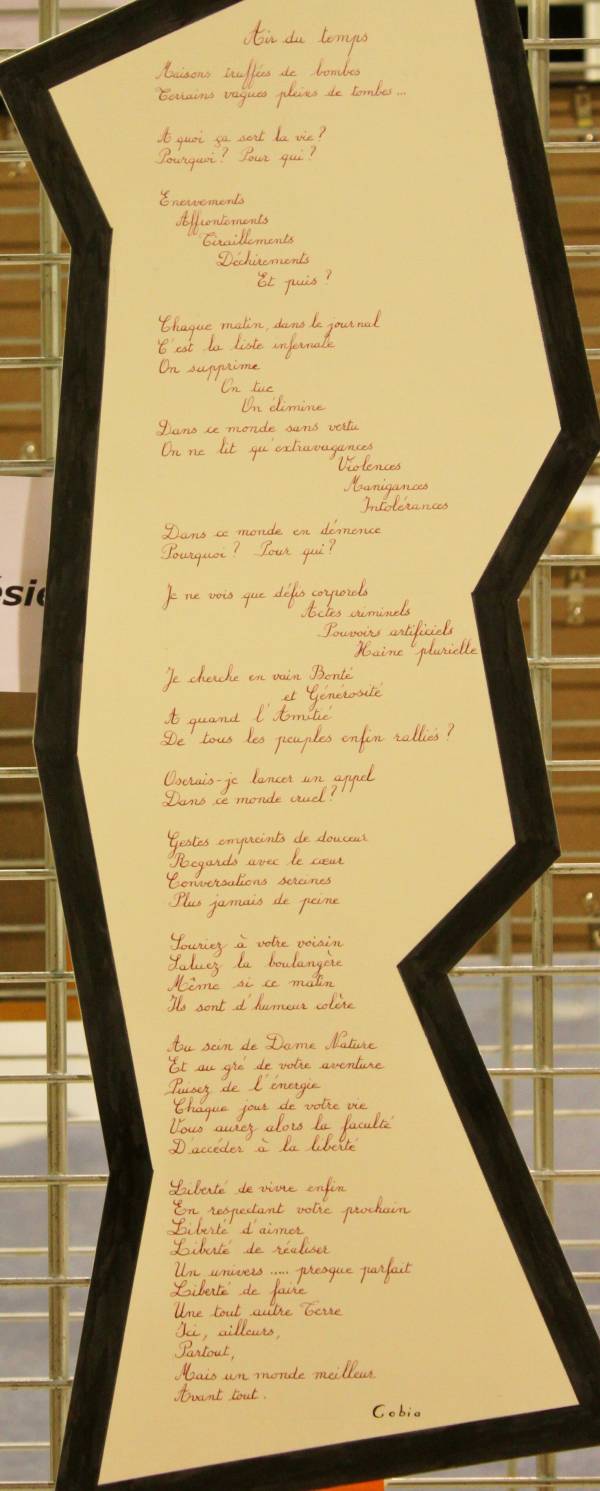 Air du temps
Maisons truffées de bombes
Terrains vagues pleins de tombes...
A quoi ça sert la vie?
Pourquoi? Pour qui?
Enervements
Affrontements
Tiraillements
Déchirements
Et puis?
Chaque matin, dans le journal
C'est la liste infernale
On supprime
On tue
On élimine
Dans ce monde sans vertu
On ne lit qu'extravagances
Violences
Manigances
Intolérances
Dans ce monde en démence
Pourquoi? Pour qui?
Je ne vois que défis corporels
Actes criminels
Pouvoirs artificiels
Haine plurielle
Je cherche en vain Bonté
et Générosité
A quand l'Amitié
De tous les peuples enfin ralliés?
Oserais-je lancer un appel
Dans ce monde cruel?
Gestes empreints de douceur
Regards avec le cœur
Conversations sereines
Plus jamais de peine
Souriez à votre voisin
Saluez la boulangère
Même si ce matin
Ils sont d'humeur colère
Au sein de Dame Nature
Et au gré de votre aventure
Puisez de l'énergie
Chaque jour de votre vie
Vous aurez alors la faculté
D'accéder à la liberté
Liberté de vivre enfin
En respectant votre prochain
Liberté d'aimer
Liberté de réaliser
Un univers ..... presque parfait
Liberté de faire
Une tout autre Terre
Ici, ailleurs,
Partout,
Mais un monde meilleur
Avant tout.
Cobia